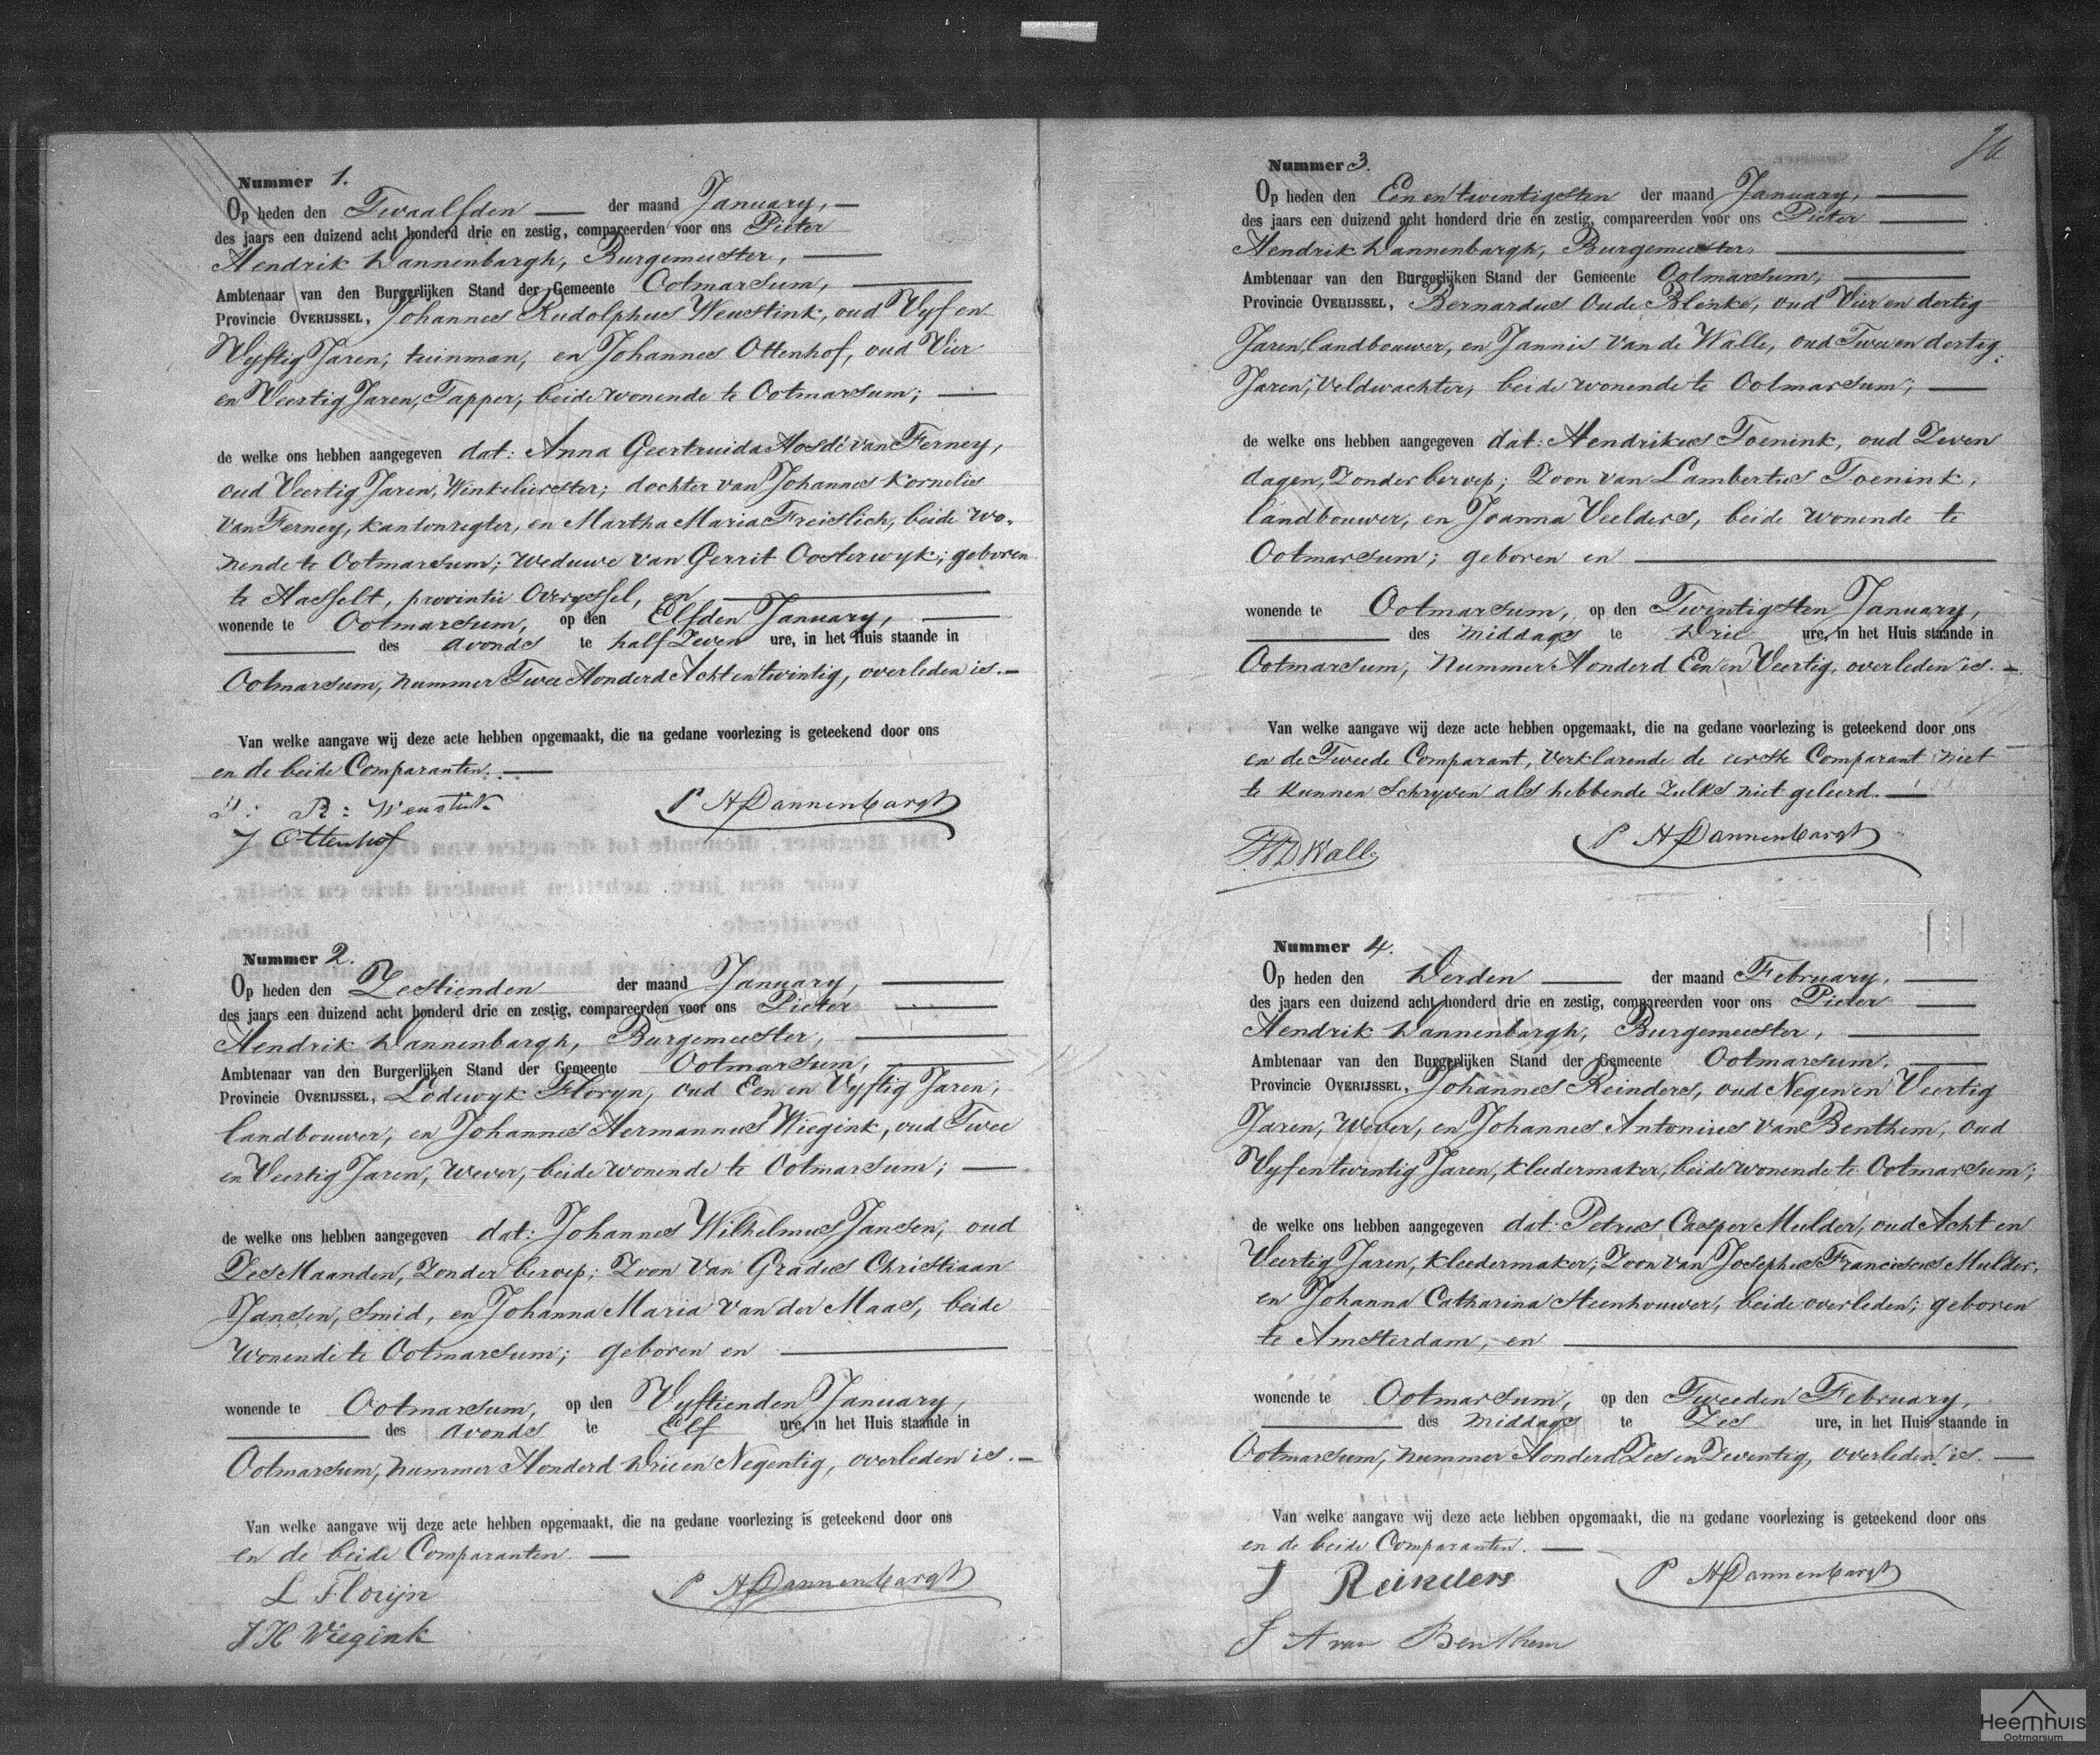 Nummer 1.
Op heden den Twaalfden der maand January,
des jaars een duizend acht honderd drie en zestig, compareerden voor ons Pieter
Hendrik Dannenbargh, Burgemeester,
Ambtenaar van den Burgerlijken Stand der Gemeente Ootmarsum,
Provincie OVERIJSSEL, Johannes Rudolphus Weustink, oud Vyf en
Vyftig Jaren, tuinman, en Johannes Ottenhof, oud Vier
en Veertig Jaren, Tapper, beide wonende te Ootmarsum;
de welke ons hebben aangegeven dat: Anna Geertruida van Ferney,
oud Veertig Jaren, Winkelierster; dochter van Johannes Kornelis
van Ferney, kantonregter, en Martha Maria Freislich, beide wo-
nende te Ootmarsum; Weduwe van Gerrit Oosterwyk; geboren
te Hasselt, provintie Overyssel, en
wonende te Ootmarsum, op den Elfden January,
des avonds te half Zeven ure, in het Huis staande in
Ootmarsum, nummer Twee Honderd Acht en twintig, overleden is.
Van welke aangave wij deze acte hebben opgemaakt, die na gedane voorlezing is geteekend door ons
en de beide Comparanten.
R: Weustink P H Dannenbargh
J Ottenhof
Nummer 2.
Op heden den Zestienden der maand January,
des jaars een duizend acht honderd drie en zestig, compareerden voor ons Pieter
Hendrik Dannenbargh, Burgemeester,
Ambtenaar van den Burgerlijken Stand der Gemeente Ootmarsum,
Provincie OVERIJSSEL, Lodewyk Floryn, oud Een en Vyftig Jaren,
landbouwer, en Johannes Hermannus Wiegink, oud Twee
en Veertig Jaren, Wever, beide wonende te Ootmarsum;
de welke ons hebben aangegeven dat: Johannes Wilhelmus Jansen, oud
Zes Maanden, Zonder beroep; Zoon van Gradus Christiaan
Jansen, Smid, en Johanna Maria van der Maas, beide
Wonende te Ootmarsum; geboren en
wonende te Ootmarsum, op den Vyftienden January,
des avonds te Elf ure, in het Huis staande in
Ootmarsum, nummer Honderd Drie en Negentig, overleden is.
Van welke aangave wij deze acte hebben opgemaakt, die na gedane voorlezing is geteekend door ons
en de beide Comparanten.
L Florijn P H Dannenbargh
J H Wiegink
Nummer 3.
Op heden den Een en twintigsten der maand January,
des jaars een duizend acht honderd drie en zestig, compareerden voor ons Pieter
Hendrik Dannenbargh, Burgemeester,
Ambtenaar van den Burgerlijken Stand der Gemeente Ootmarsum,
Provincie OVERIJSSEL, Bernardus Oude Blenke, oud Vier en dertig
Jaren, landbouwer, en Jannis van de Walle, oud Twee en dertig
Jaren, Veldwachter, beide wonende te Ootmarsum;
de welke ons hebben aangegeven dat: Hendrikus Toenink, oud Zeven
dagen, Zonder beroep; Zoon van Lambertus Toenink,
landbouwer, en Joanna Veelders, beide wonende te
Ootmarsum; geboren en
wonende te Ootmarsum, op den Twintigsten January,
des middags te Drie ure, in het Huis staande in
Ootmarsum, nummer Honderd Een en Veertig, overleden is.
Van welke aangave wij deze acte hebben opgemaakt, die na gedane voorlezing is geteekend door ons
en de Tweede Comparant, verklarende de eerste Comparant niet
te kunnen Schryven als hebbende zulks niet geleerd.
P H Dannenbargh
Nummer 4.
Op heden den Derden der maand February,
des jaars een duizend acht honderd drie en zestig, compareerden voor ons Pieter
Hendrik Dannenbargh, Burgemeester,
Ambtenaar van den Burgerlijken Stand der Gemeente Ootmarsum,
Provincie OVERIJSSEL, Johannes Reinders, oud Negen en Veertig
Jaren, Wever, en Johannes Antonius van Benthem, oud
Vyf en twintig Jaren, kleedermaker, beide wonende te Ootmarsum;
de welke ons hebben aangegeven dat: Petrus Casper Mulder, oud Acht en
Veertig Jaren, kleedermaker; Zoon van Josephus Franciscus Mulder,
en Johanna Catharina Steenhouwer, beide overleden; geboren
te Amsterdam, en
wonende te Ootmarsum, op den Tweeden February,
des middags te Zes ure, in het Huis staande in
Ootmarsum, nummer Honderd Zes en Zeventig, overleden is.
Van welke aangave wij deze acte hebben opgemaakt, die na gedane voorlezing is geteekend door ons
en de beide Comparanten.
J Reinders P H Dannenbargh
J A van Benthem
Heemhuis
Ootmarsum